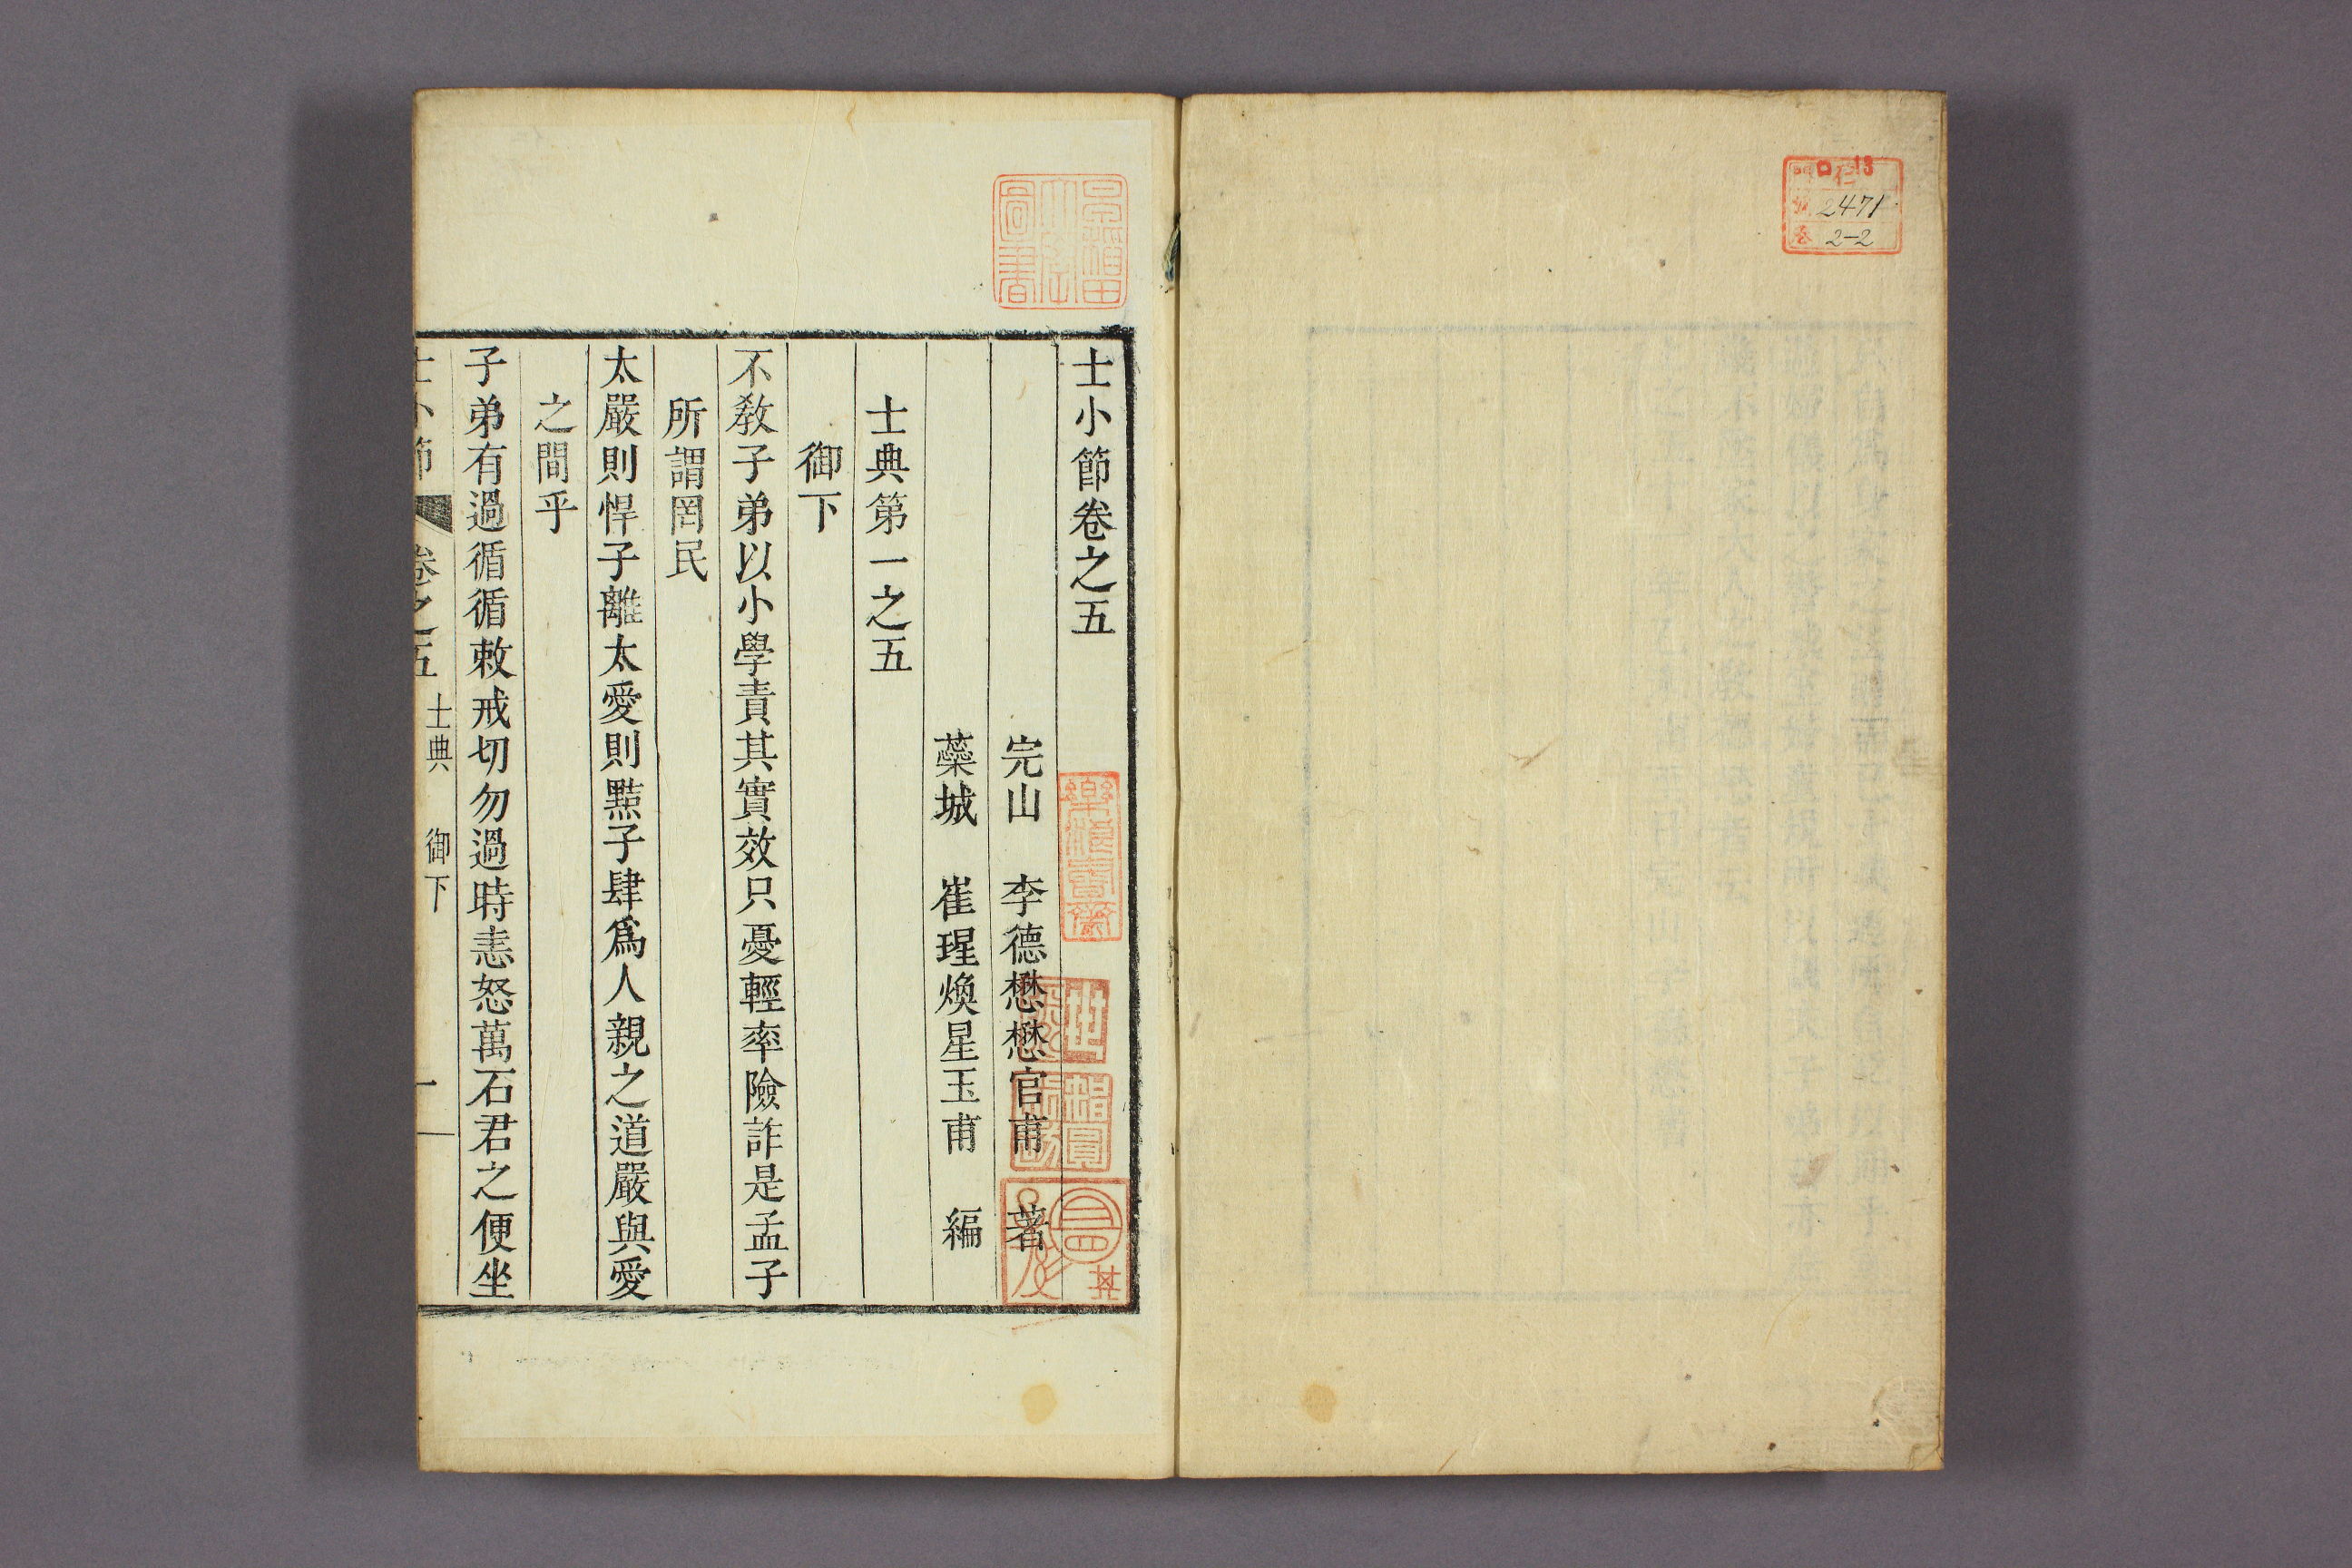 2471
2-2
士小節卷之五
完山 李德懋懋官甫 著
蘂城 崔瑆煥星玉甫 編
士典第一之五
御下
不教子弟以小學責其實效只憂輕率險詐是孟子
所謂罔民
太嚴則悍子離太愛則黠子肆爲人親之道嚴與愛
之間乎
子弟有過循循敕戒切勿過時恚怒萬石君之便坐
士小節 卷之五 士典 御下 一